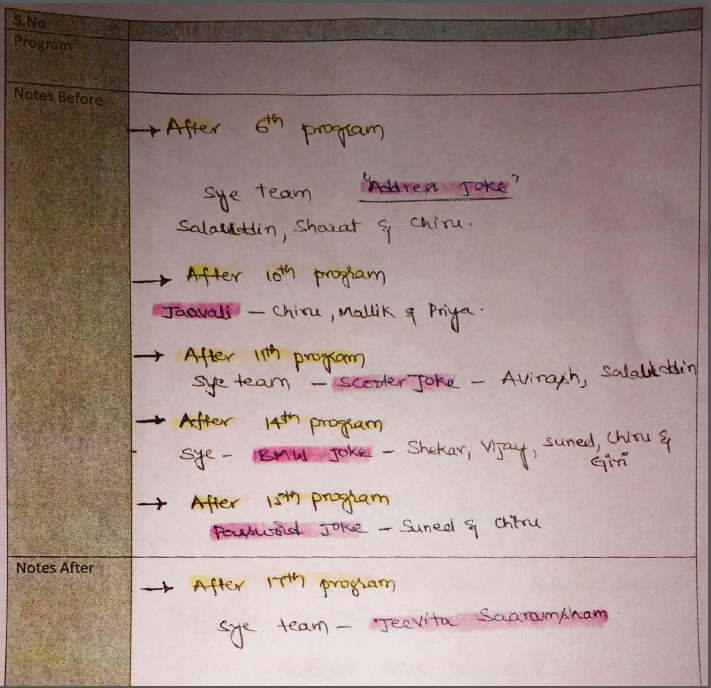 S.No
Program
Notes Before
→ After 6th program
Sye team "Address Joke"
Salaluddin, Sharat & Chiru.
→ After 10th program
Jaavali - Chiru, Mallik & Priya.
→ After 11th program
Sye team - Scooter Joke - Avinash, Salaluddin
→ After 14th program
Sye - BMW Joke - Shekar, Vijay, Suneel, Chiru &
Giri
→ After 15th program
Password Joke - Suneel & Chiru
Notes After
→ After 17th program
Sye team - Jeevita Saaramsham